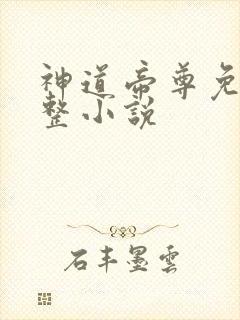 神道帝尊免
整小說
石丰墨雲